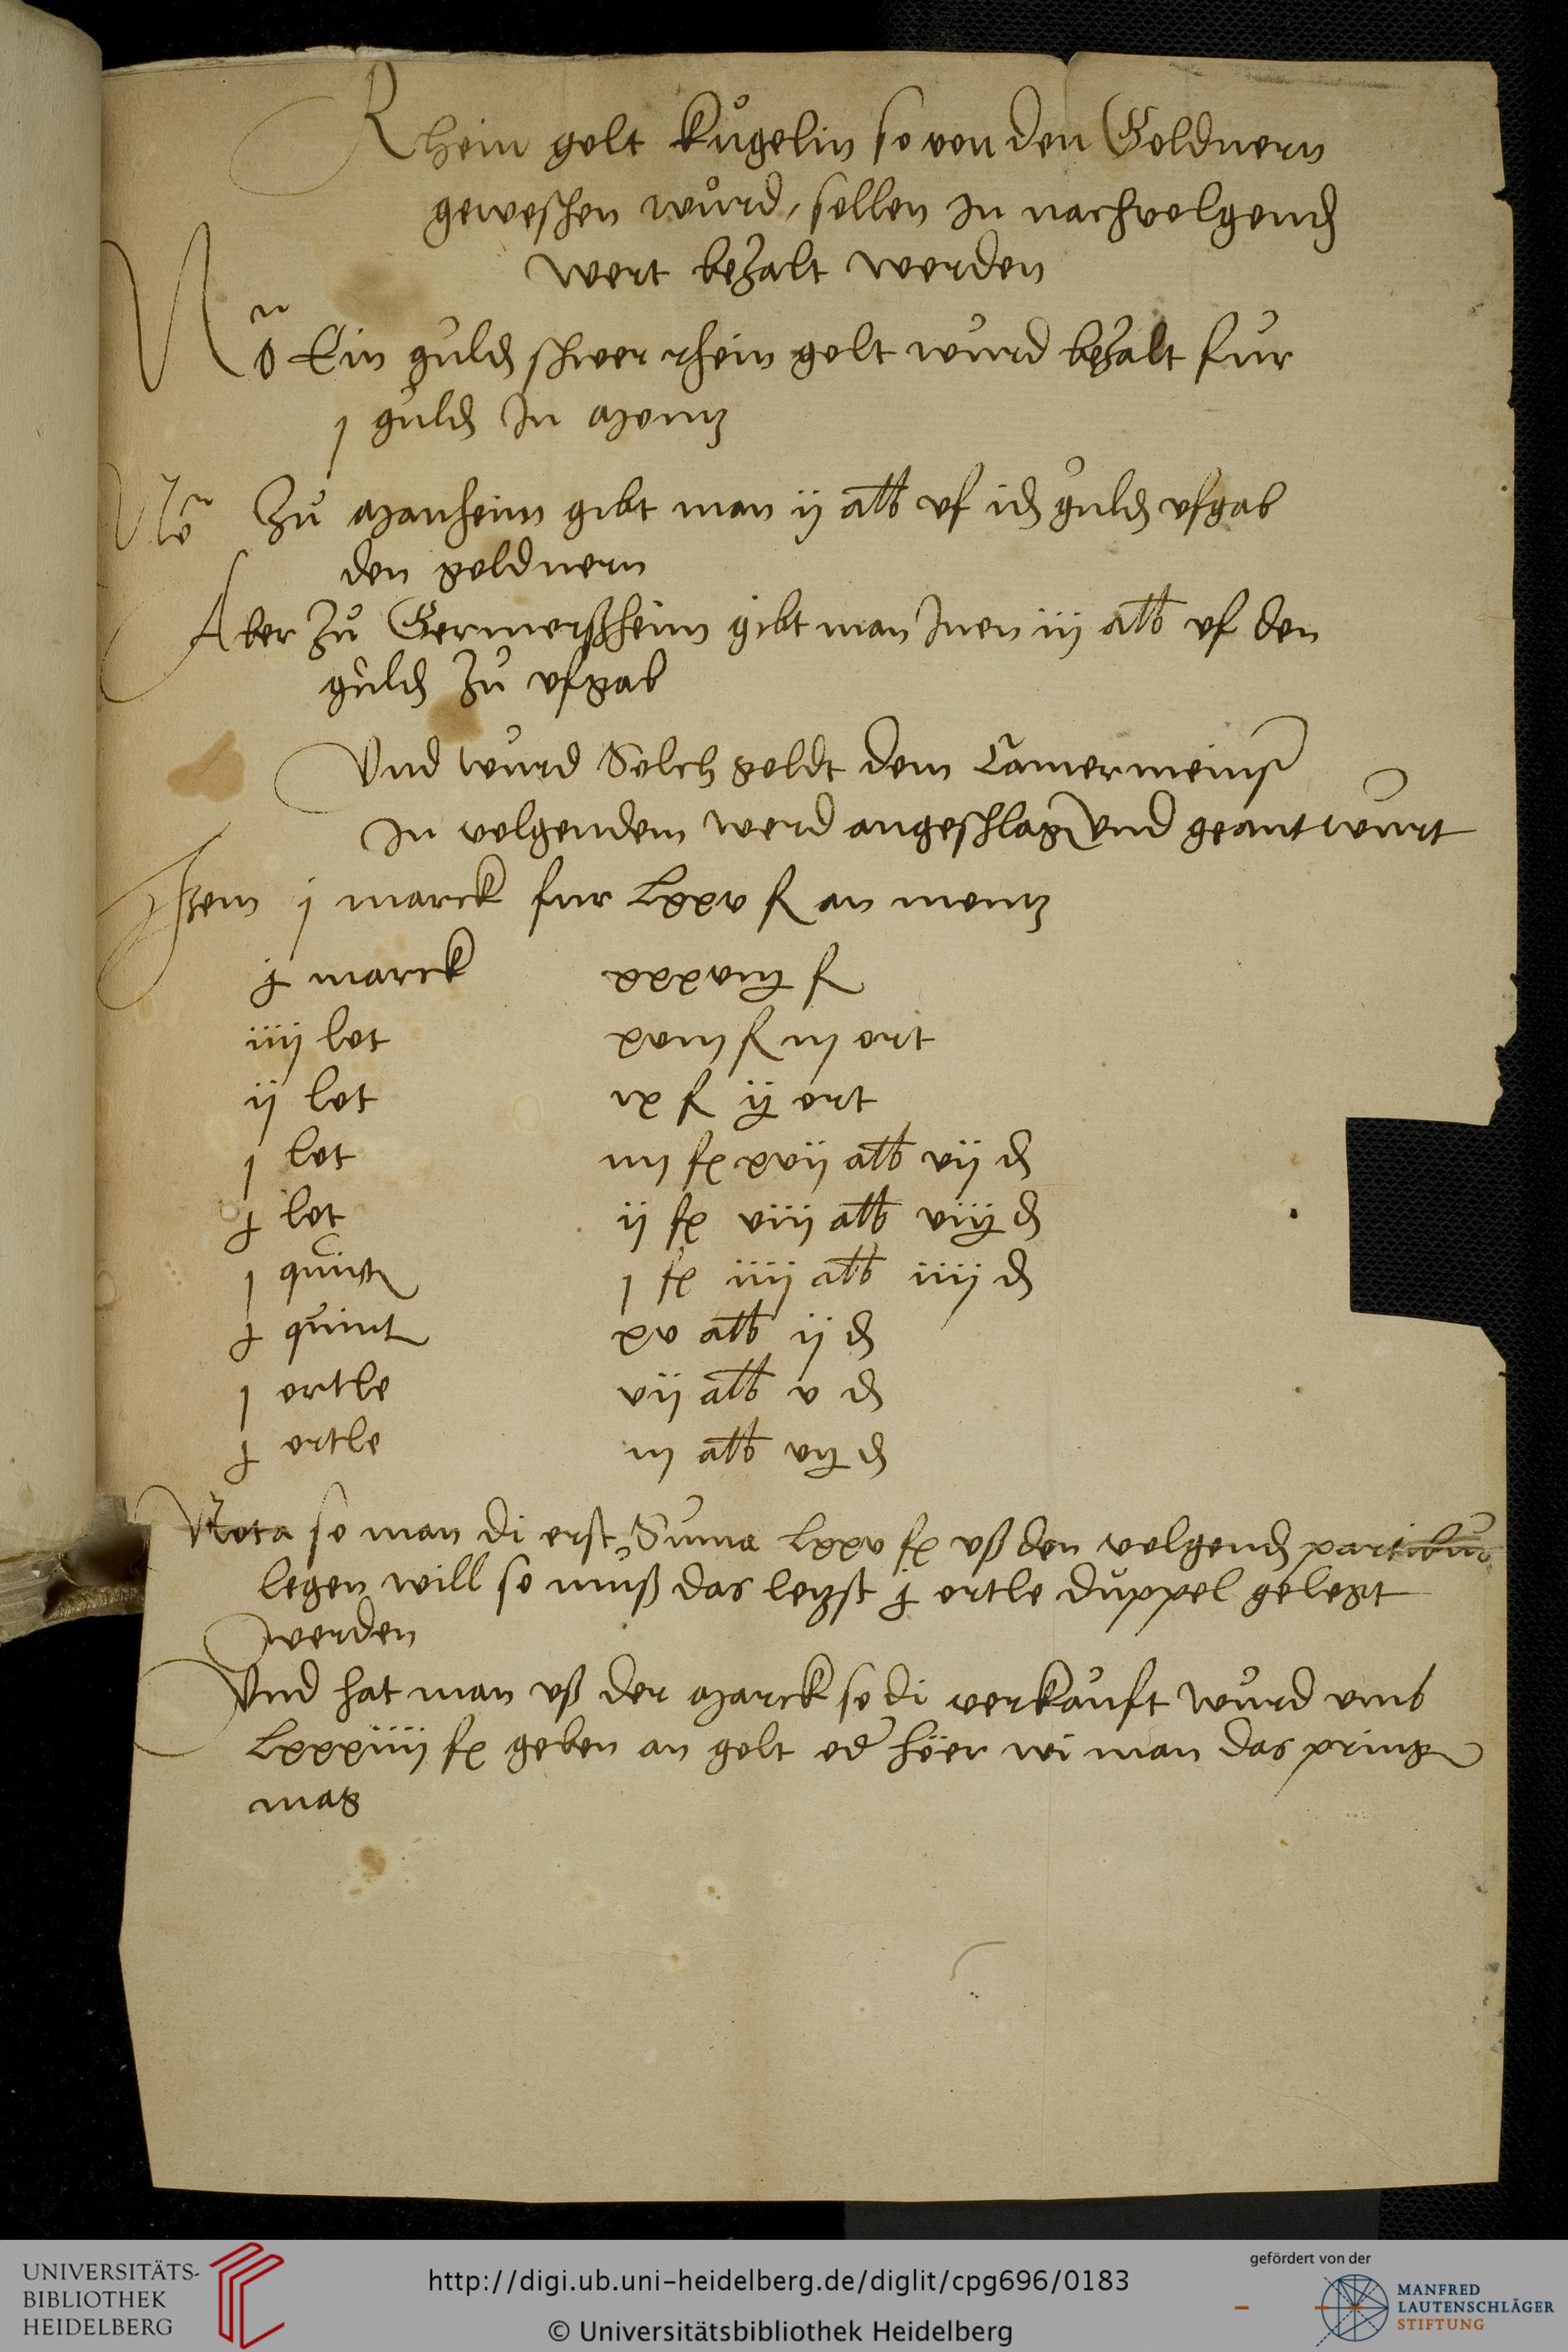 Rhein golt kůgelin so von den Goldnern
geweschen wůrd, sollen in nachvolgend
wert bezalt werden
No Ein guld schwer rhein golt wurd bezalt fur
j guld in montz
No Zů manheim gibt man ij alb uf id guld ufgab
den goldnern
Aber zů Germerßheim gibt man Inen iij alb uf den
guld zů ufgab
Und wurd Solch goldt dem Camermeinst
In volgendem werd angeschlag und geantwurt
Item j marck fur lxxv fl an montz
j marck xxxviij fl
iiij lot xviij fl iij ort
ij lot ix fl ij ort
j lot iiij fl xvij alb vij d
j lot ij fl viij alb viij d
j quint j fl iiij alb iiij d
j quint xv alb ij d
j ortle vij alb v d
j ortle iij alb vij d
Nota so man di erst Suma lxxv fl uß den volgend
legen will so muß das letzst j ortle duppel gelegt
werden
Und hat man uß der marck so di verkauft wurd umb
lxxxiiij fl geben an golt od höer wi man das pring
mag
UNIVERSITÄTS-
BIBLIOTHEK
HEIDELBERG
http://digi.ub.uni-heidelberg.de/diglit/cpg696/0183
© Universitätsbibliothek Heidelberg
gefördert von der
MANFRED
LAUTENSCHLÄGER
STIFTUNG